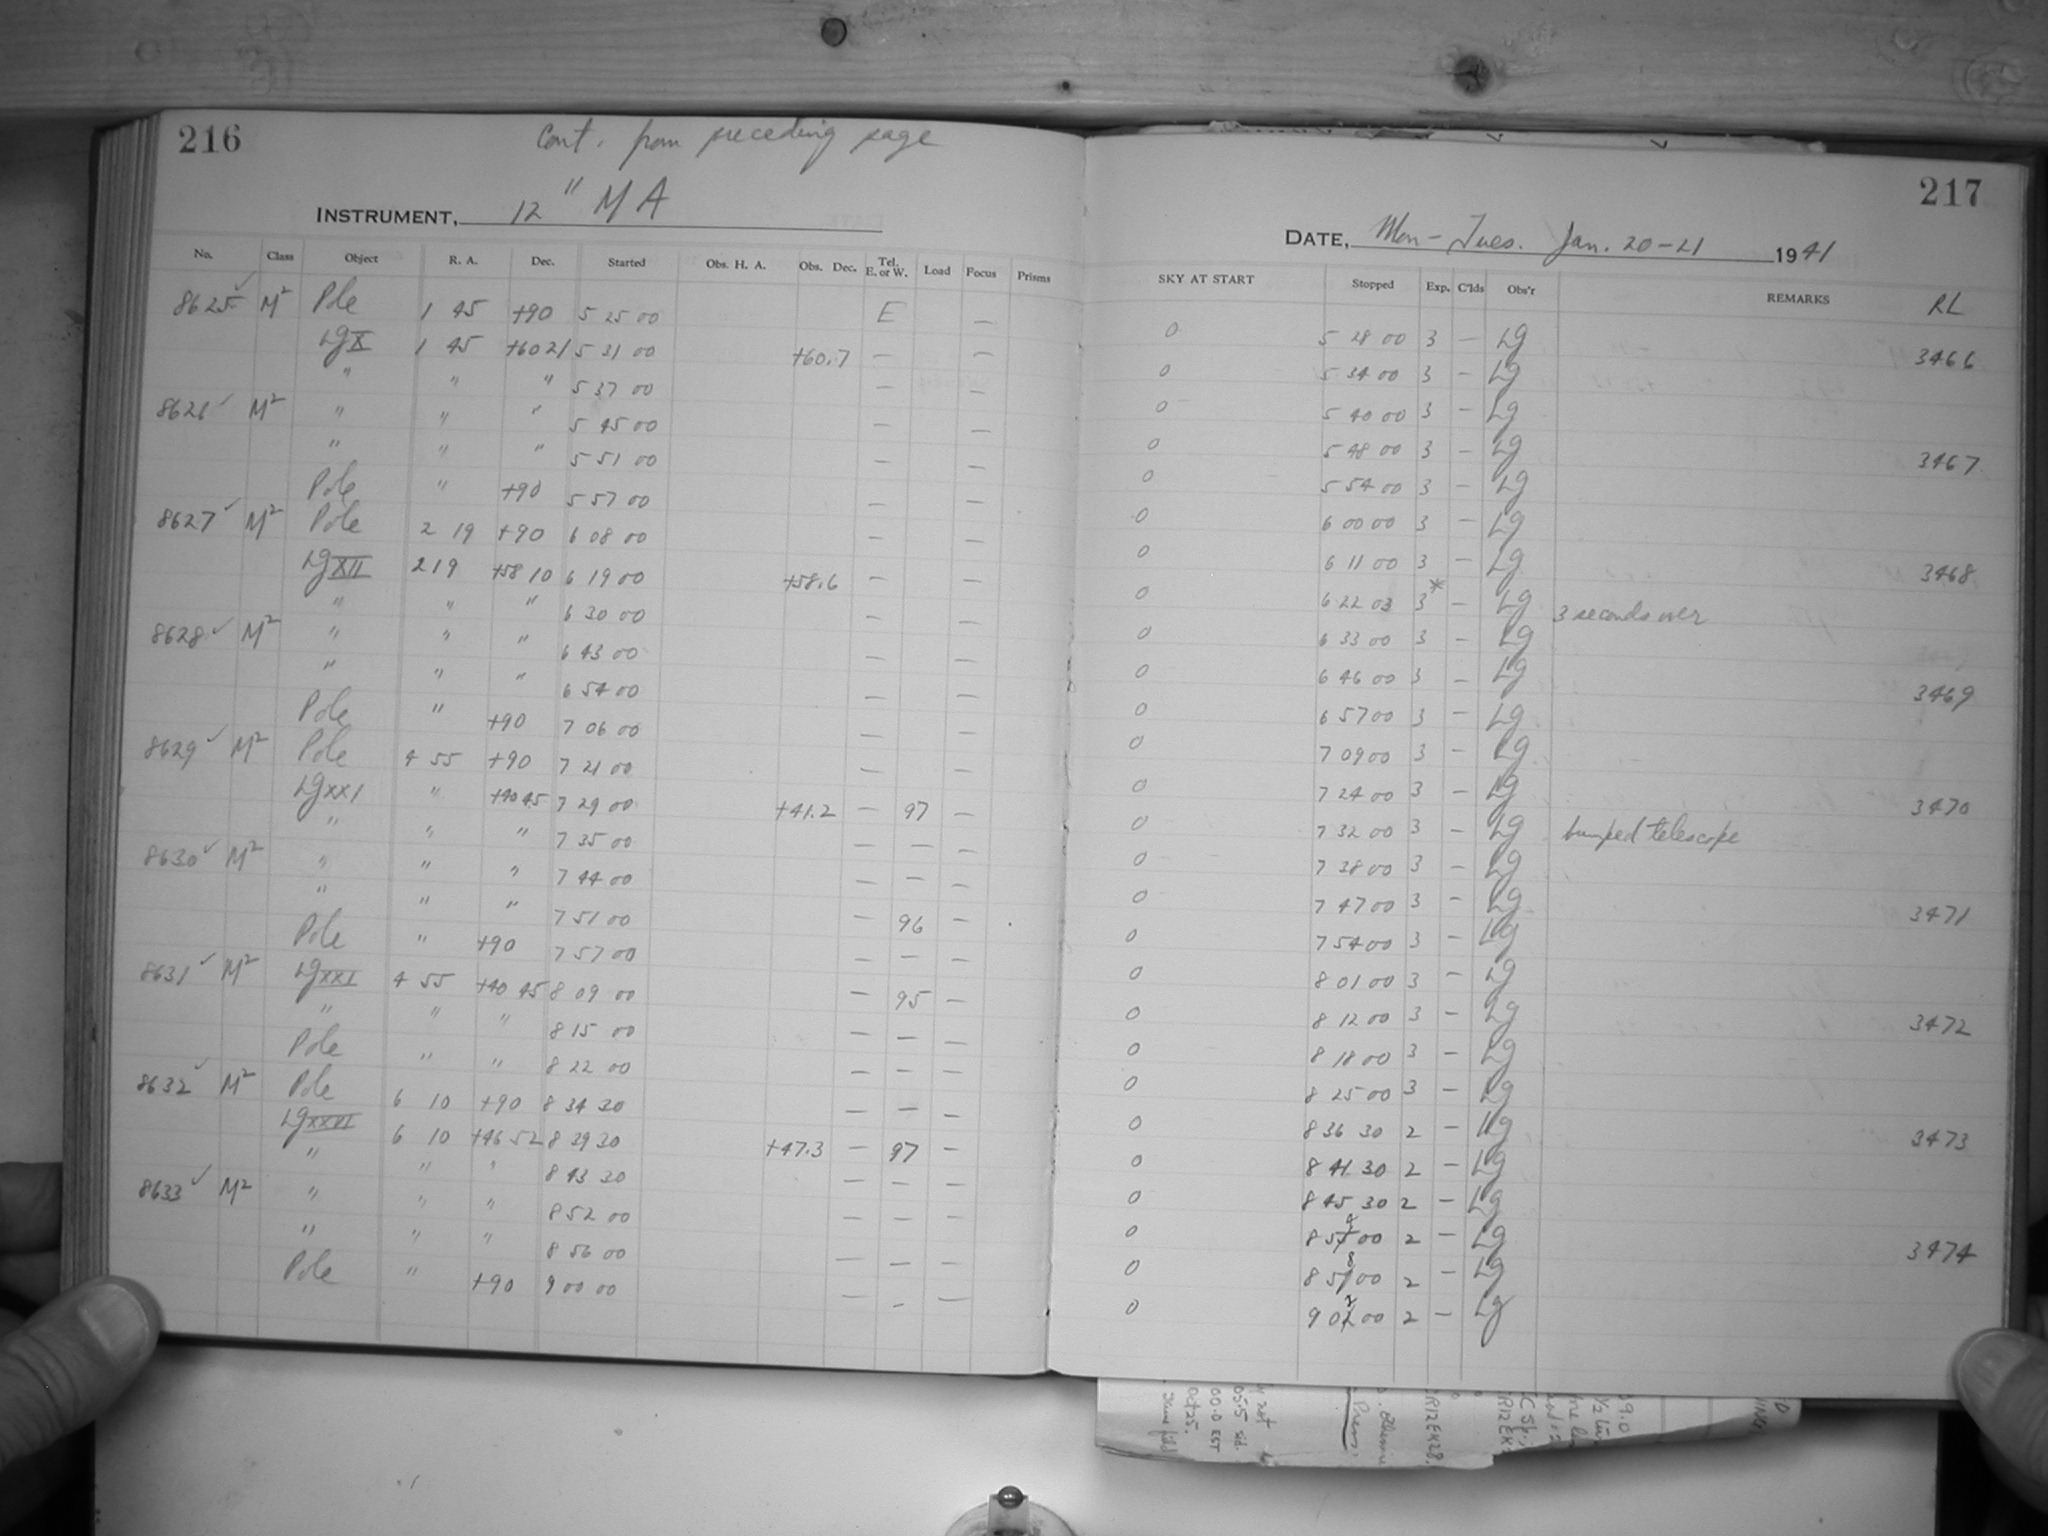 216
Cont. from preceding page
INSTRUMENT, 12" MA
No. Class Object R. A. Dec. Started Obs. H. A. Obs. Dec. Tel. E. or W. Load Focus Prisms
8625 ✓ M² Pole 1 45 +90 5 25 00 E —
LgX 1 45 +60 21 5 31 00 +60.7 — —
" " " 5 37 00 — —
8626 ✓ M² " " " 5 45 00 — —
" " " 5 51 00 — —
Pole " +90 5 57 00 — —
8627 ✓ M² Pole 2 19 +90 6 08 00 — —
LgXII 2 19 +58 10 6 19 00 +58.6 — —
" " " 6 30 00 — —
8628 ✓ M² " " " 6 43 00 — —
" " " 6 54 00 — —
Pole " +90 7 06 00 — —
8629 ✓ M² Pole 4 55 +90 7 21 00 — —
Lgxx1 " +40 45 7 29 00 +41.2 — 97 —
" " " 7 35 00 — — —
8630 ✓ M² " " " 7 44 00 — — —
" " " 7 51 00 — 96 —
Pole " +90 7 57 00 — — —
8631 ✓ M² LgXXI 4 55 +40 45 8 09 00 — 95 —
" " " 8 15 00 — — —
Pole " " 8 22 00 — — —
8632 ✓ M² Pole 6 10 +90 8 34 30 — — —
LgXXVI 6 10 +46 52 8 39 30 +47.3 — 97 —
" " " 8 43 30 — — —
8633 ✓ M² " " " 8 52 00 — — —
" " " 8 56 00 — — —
Pole " +90 9 00 00 — — —
217
DATE, Mon-Tues. Jan. 20-21 1941
SKY AT START Stopped Exp. C'lds Obs'r REMARKS RL
0 5 28 00 3 — Lg 3466
0 5 34 00 3 — Lg
0 5 40 00 3 — Lg
0 5 48 00 3 — Lg 3467
0 5 54 00 3 — Lg
0 6 00 00 3 — Lg
0 6 11 00 3 — Lg 3468
0 6 22 03 3* — Lg 3 seconds over
0 6 33 00 3 — Lg
0 6 46 00 3 — Lg 3469
0 6 57 00 3 — Lg
0 7 09 00 3 — Lg
0 7 24 00 3 — Lg 3470
0 7 32 00 3 — Lg bumped telescope
0 7 38 00 3 — Lg
0 7 47 00 3 — Lg 3471
0 7 54 00 3 — Lg
0 8 01 00 3 — Lg
0 8 12 00 3 — Lg 3472
0 8 18 00 3 — Lg
0 8 25 00 3 — Lg
0 8 36 30 2 — Lg 3473
0 8 41 30 2 — Lg
0 8 45 30 2 — Lg
0 8 54 00 2 — Lg 3474
0 8 58 00 2 — Lg
0 9 02 00 2 — Lg